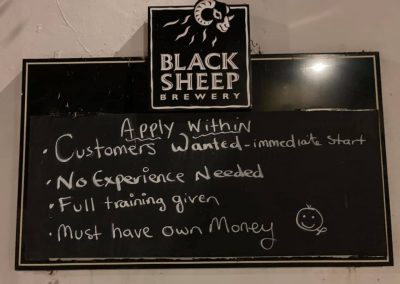 BLACK
SHEEP
BREWERY
Apply Within
• Customers Wanted - immediate start
• No Experience Needed
• Full training given
• Must have own Money